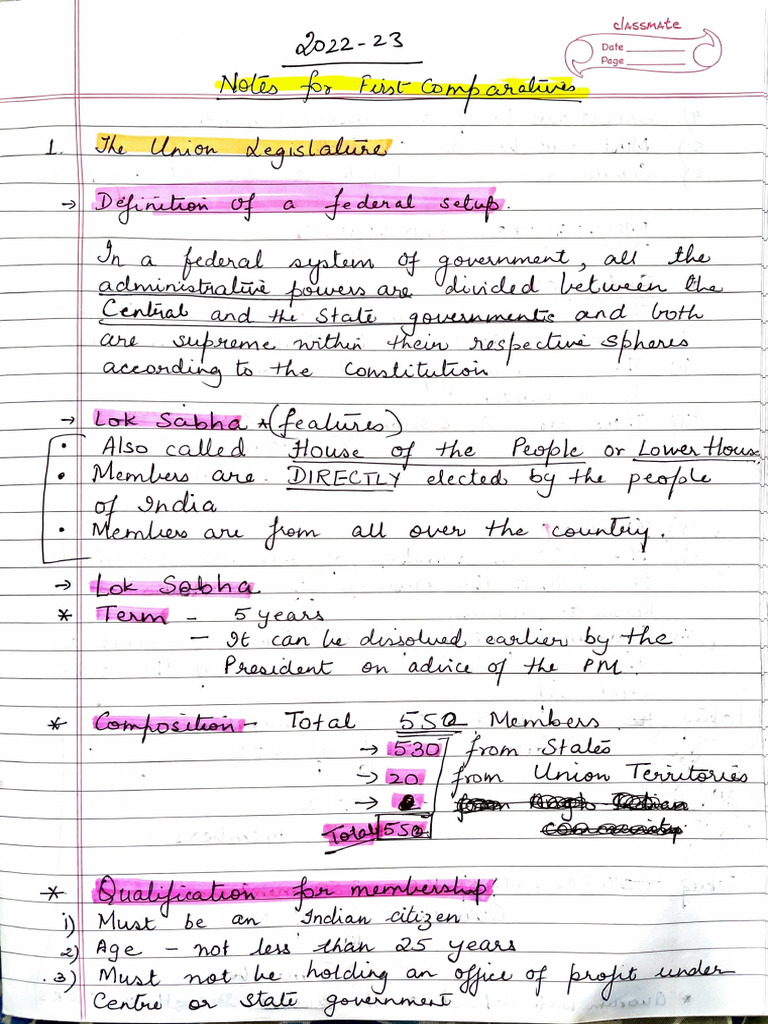 classmate
Date
Page
2022-23
Notes for First Comparatives
1. The Union Legislature
→ Definition of a federal setup.
In a federal system of government, all the
administrative powers are divided between the
Central and the State governments and both
are supreme within their respective spheres
according to the Constitution
→ Lok Sabha *(features)
• Also called House of the People or Lower House
• Members are DIRECTLY elected by the people
of India
• Members are from all over the country.
→ Lok Sabha
* Term - 5 years
- It can be dissolved earlier by the
President on advice of the PM.
* Composition - Total 550 Members
→ 530 from States
→ 20 from Union Territories
→
Total 550
* Qualification for membership.
i) Must be an Indian citizen.
2) Age - not less than 25 years
3) Must not be holding an office of profit under
Centre or State government